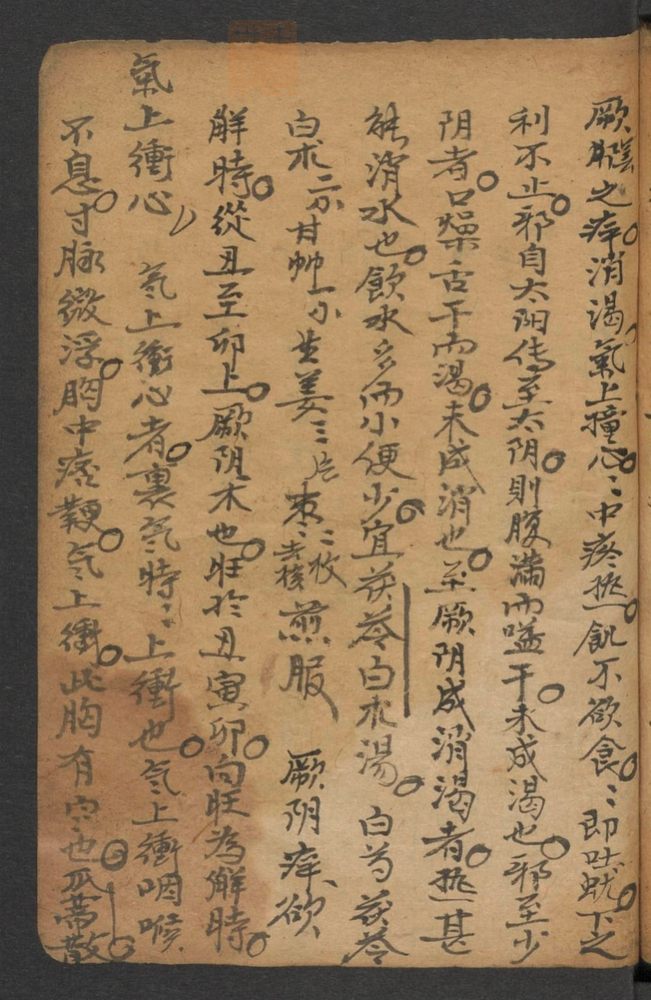 厥阴之病。消渴。氣上撞心。〻中疼热。飢不欲食。〻即吐蚘。下之
利不止。邪自太阳传至太阴。則腹满而嗌干。未成渴也。邪至少
阴者。口燥舌干而渴。未成消也。至厥阴成消渴者。热甚
能消水也。飲水多而小便少。宜茯苓白朮湯。 白芍 茯苓
白朮 甘艸 生姜三片 枣二枚去核 煎服 厥阴病欲
解時。從丑至卯上。厥阴木也。旺於丑寅卯。向旺為解時。
氣上衝心 氣上衝心者。裏氣時〻上衝也。氣上衝咽喉
不息。寸脉微浮。胸中痞鞕。氣上衝。此胸有寒也。瓜蒂散。